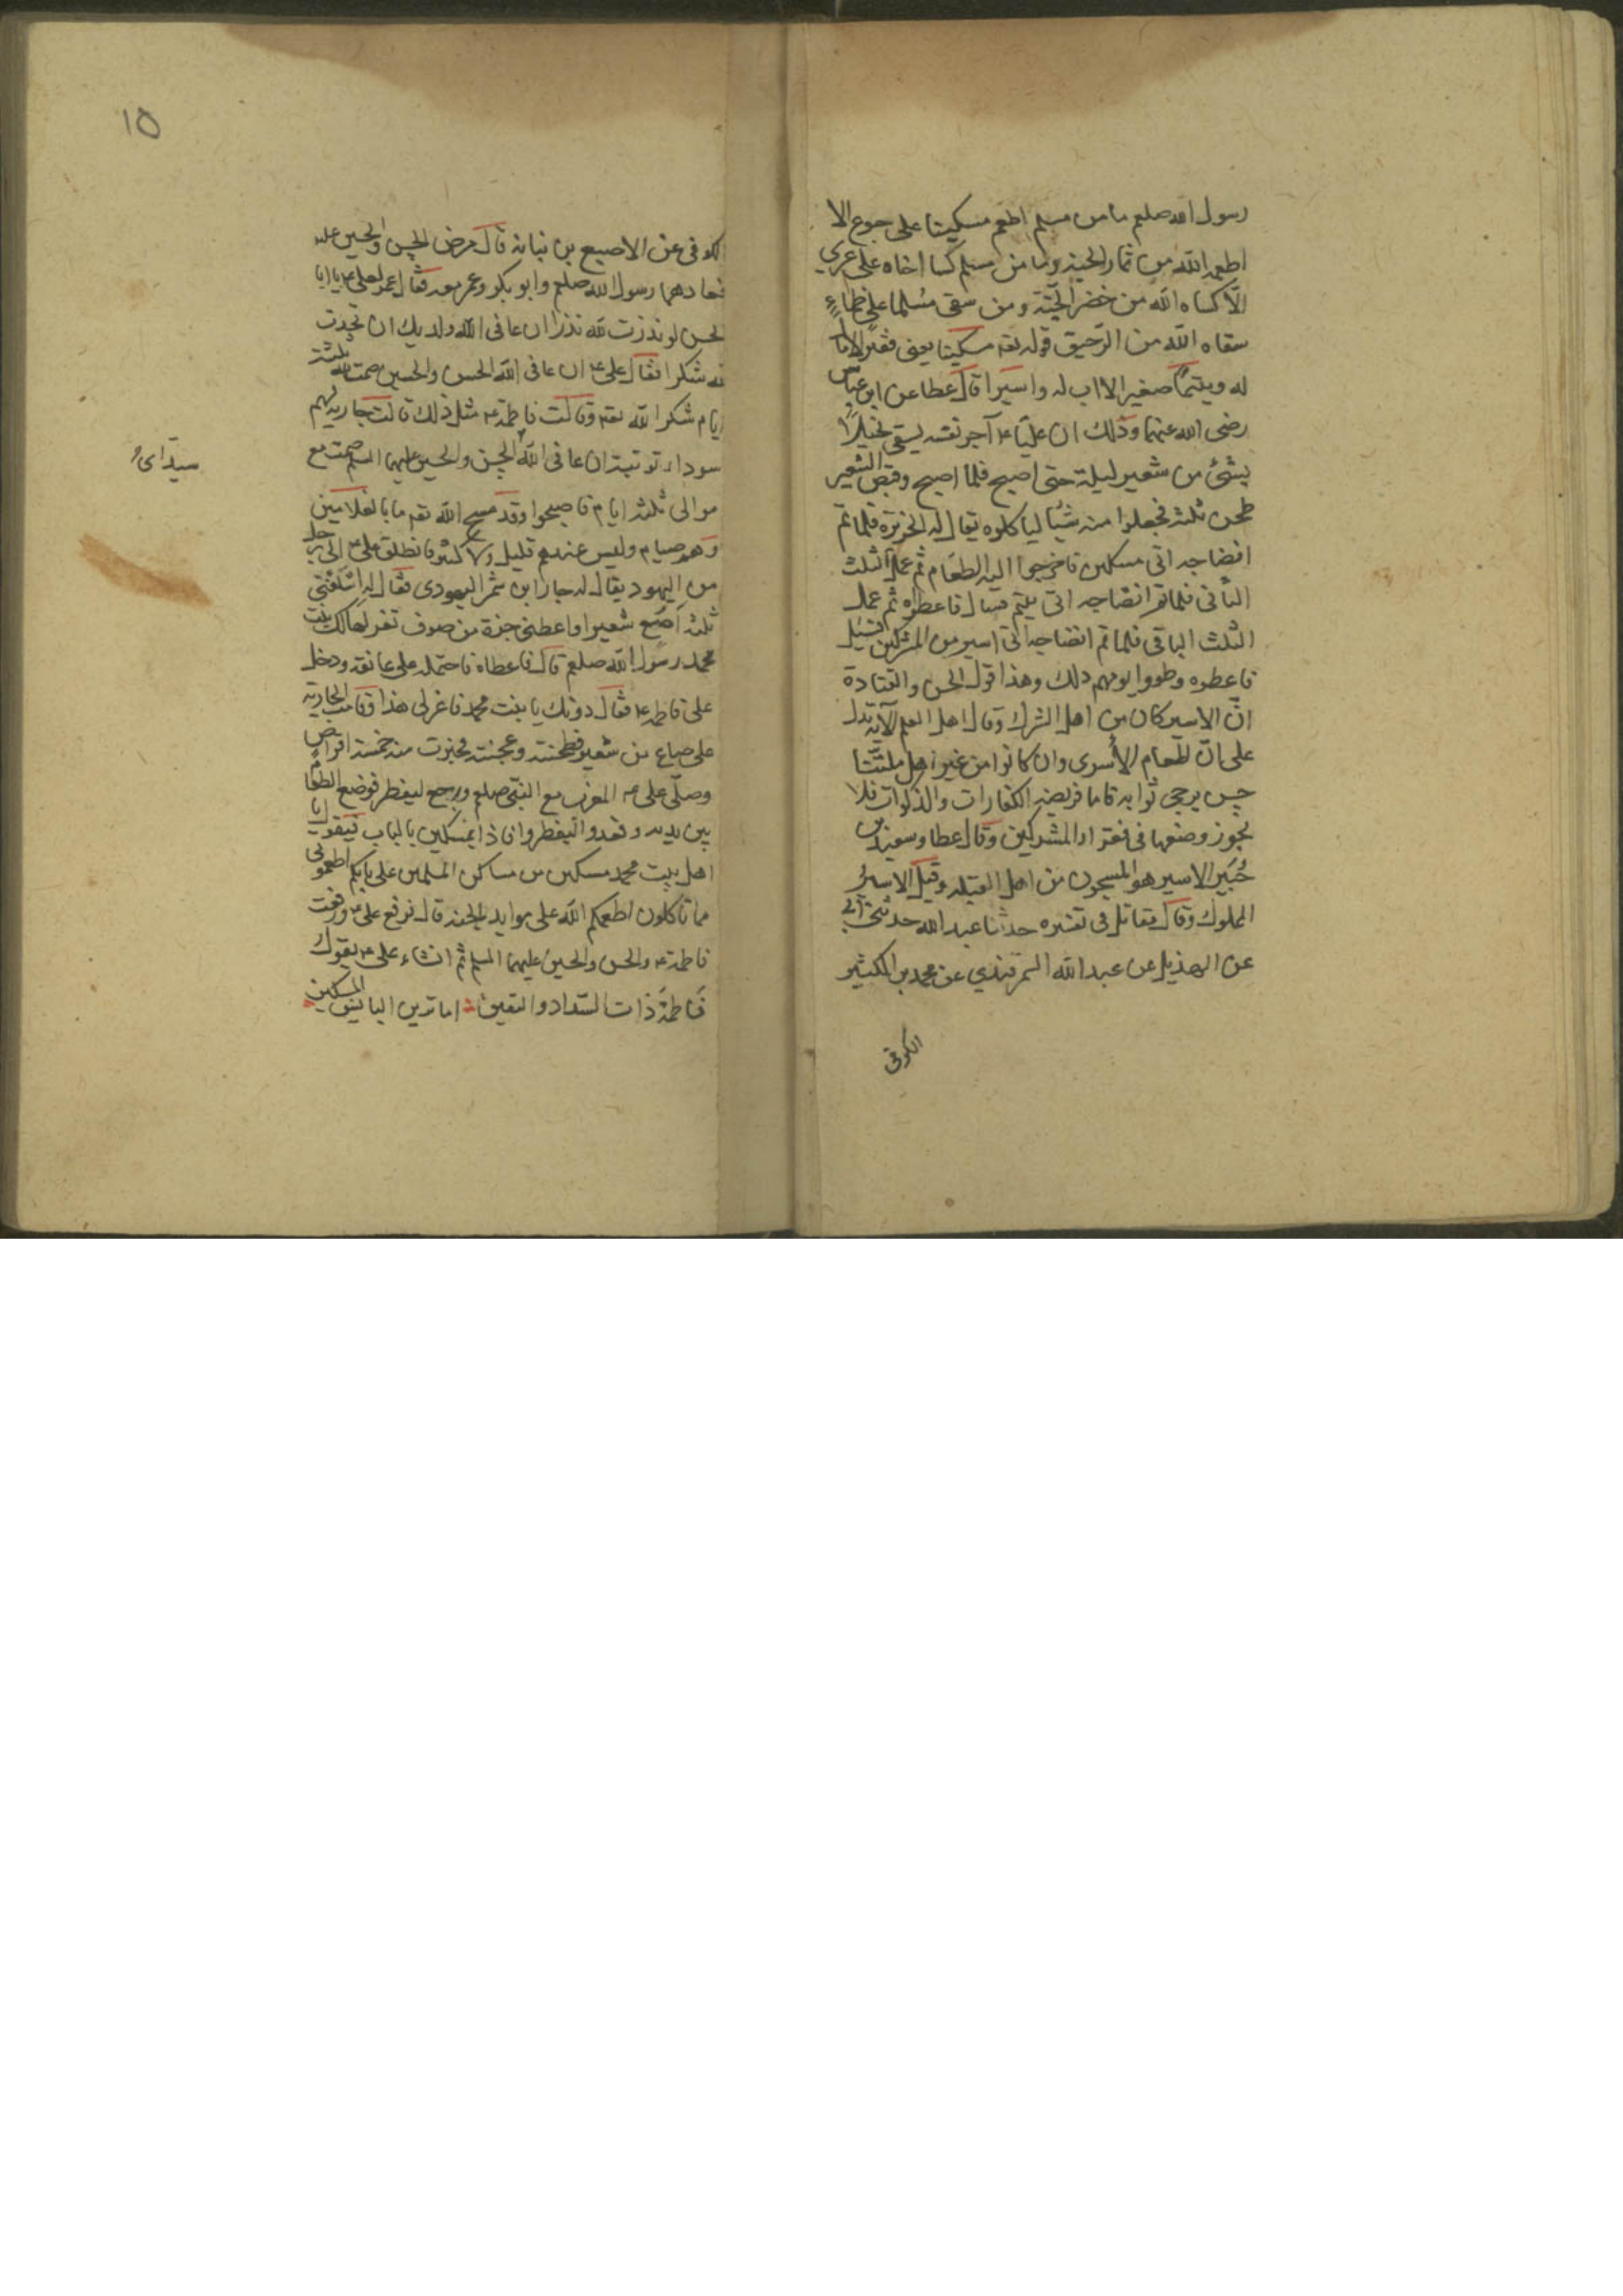 رسول الله صلعم ما من مسلم اطعم مسكينا على جوع الا
اطعمه الله من ثمار الجنة وما من مسلم كسا اخاه على عري
الّا كساه الله من خضر الجنّة ومن سقى مسلما على ظماءٍ
سقاه الله من الرّحيق قوله تعه مسكينا يعنى فقيرا لا مال
له ويتيمًا صغيرا لا اب له واسيرا قال عطا عن ابن عبّاس
رضى الله عنهما وذلك ان عليّا ع آجر نفسه ليسقى نخيلًا
بشئ من شعير ليلة حتى اصبح فلما اصبح وقبض الشعير
طحن ثلثه فجعلوا منه شيئا لياكلوه يقال له الخزيرة فلما تم
انضاجه اتى مسكين فاخرجوا اليه الطعام ثم عمل الثلث
الثانى فلما تم انضاجه اتى يتيم فسال فاعطوه ثم عمل
الثلث الباقى فلما تم انضاجه اتى اسير من المشركين فسئل
فاعطوه وطووا يومهم ذلك وهذا قول الحسن والقتادة
انّ الاسير كان من اهل الشرك وقال اهل العلم الآية تدل
على انّ اطعام الأسرى وان كانوا من غير اهل ملتنا
حسن يرجى ثوابه فاما فريضة الكفارات والذكوات فلا
يجوز وضعها فى فقراء المشركين وقال عطا وسعيد بن
جُبَير الاسير هو المسجون من اهل القبلة وقيل الاسير
المملوك وقال مقاتل فى تفسيره حدثنا عبد الله حدثنى ابى
عن الهذيل عن عبد الله السمرقندي عن محمد بن الكثير
الكوفى
١٥
الكوفى عن الاصبع بن نباته قال مرض الحسن والحسين عليه
فعادهما رسول الله صلعم وابو بكر وعمر معه فقال عمر لعلى ع يا ابا
الحسن لو نذرت لله نذرا ان عافى الله ولديك ان تحدث
لله شكرا فقال على ع ان عافى الله الحسن والحسين صمت لله ثلثة
ايام شكرا لله تعه وقالت فاطمة ع مثل ذلك قالت جارية لهم
سوداء نوبية ان عافى الله الحسن والحسين عليهما السلم صمت مع
موالى ثلثة ايام فاصبحوا وقد مسح الله تعه ما بالغلامين
وهم صيام وليس عندهم قليل ولا كثير فانطلق على ع الى رجل
من اليهود يقال له جار ابن شمر اليهودى فقال له اسلفنى
ثلثة اصع شعيرا واعطنى جزة من صوف تغزلها لك بنت
محمد رسول الله صلعم قال فاعطاه فاحتمله على عاتقه ودخل
على فاطمة ع فقال دونك يا بنت محمد فاغزلى هذا وقامت الجارية
على صاع من شعير فطحنته وعجنته وخبزت منه خمسة اقراص
وصلّى على ع المغرب مع النبّى صلعم ورجع ليفطر فوضع الطعام
بين يديه وقعدوا ليفطروا فاذا مسكين بالباب يقول يا
اهل بيت محمد مسكين من مساكن المسلمين على بابكم اطعمونى
مما تاكلون اطعمكم الله على موايد الجنة قال فرفع على ع ورفعت
فاطمة ع والحسن والحسين عليهما السلم ثم انشاء على ع يقول
فاطمة ذات السّداد واليقين اما ترين البايس المسكين